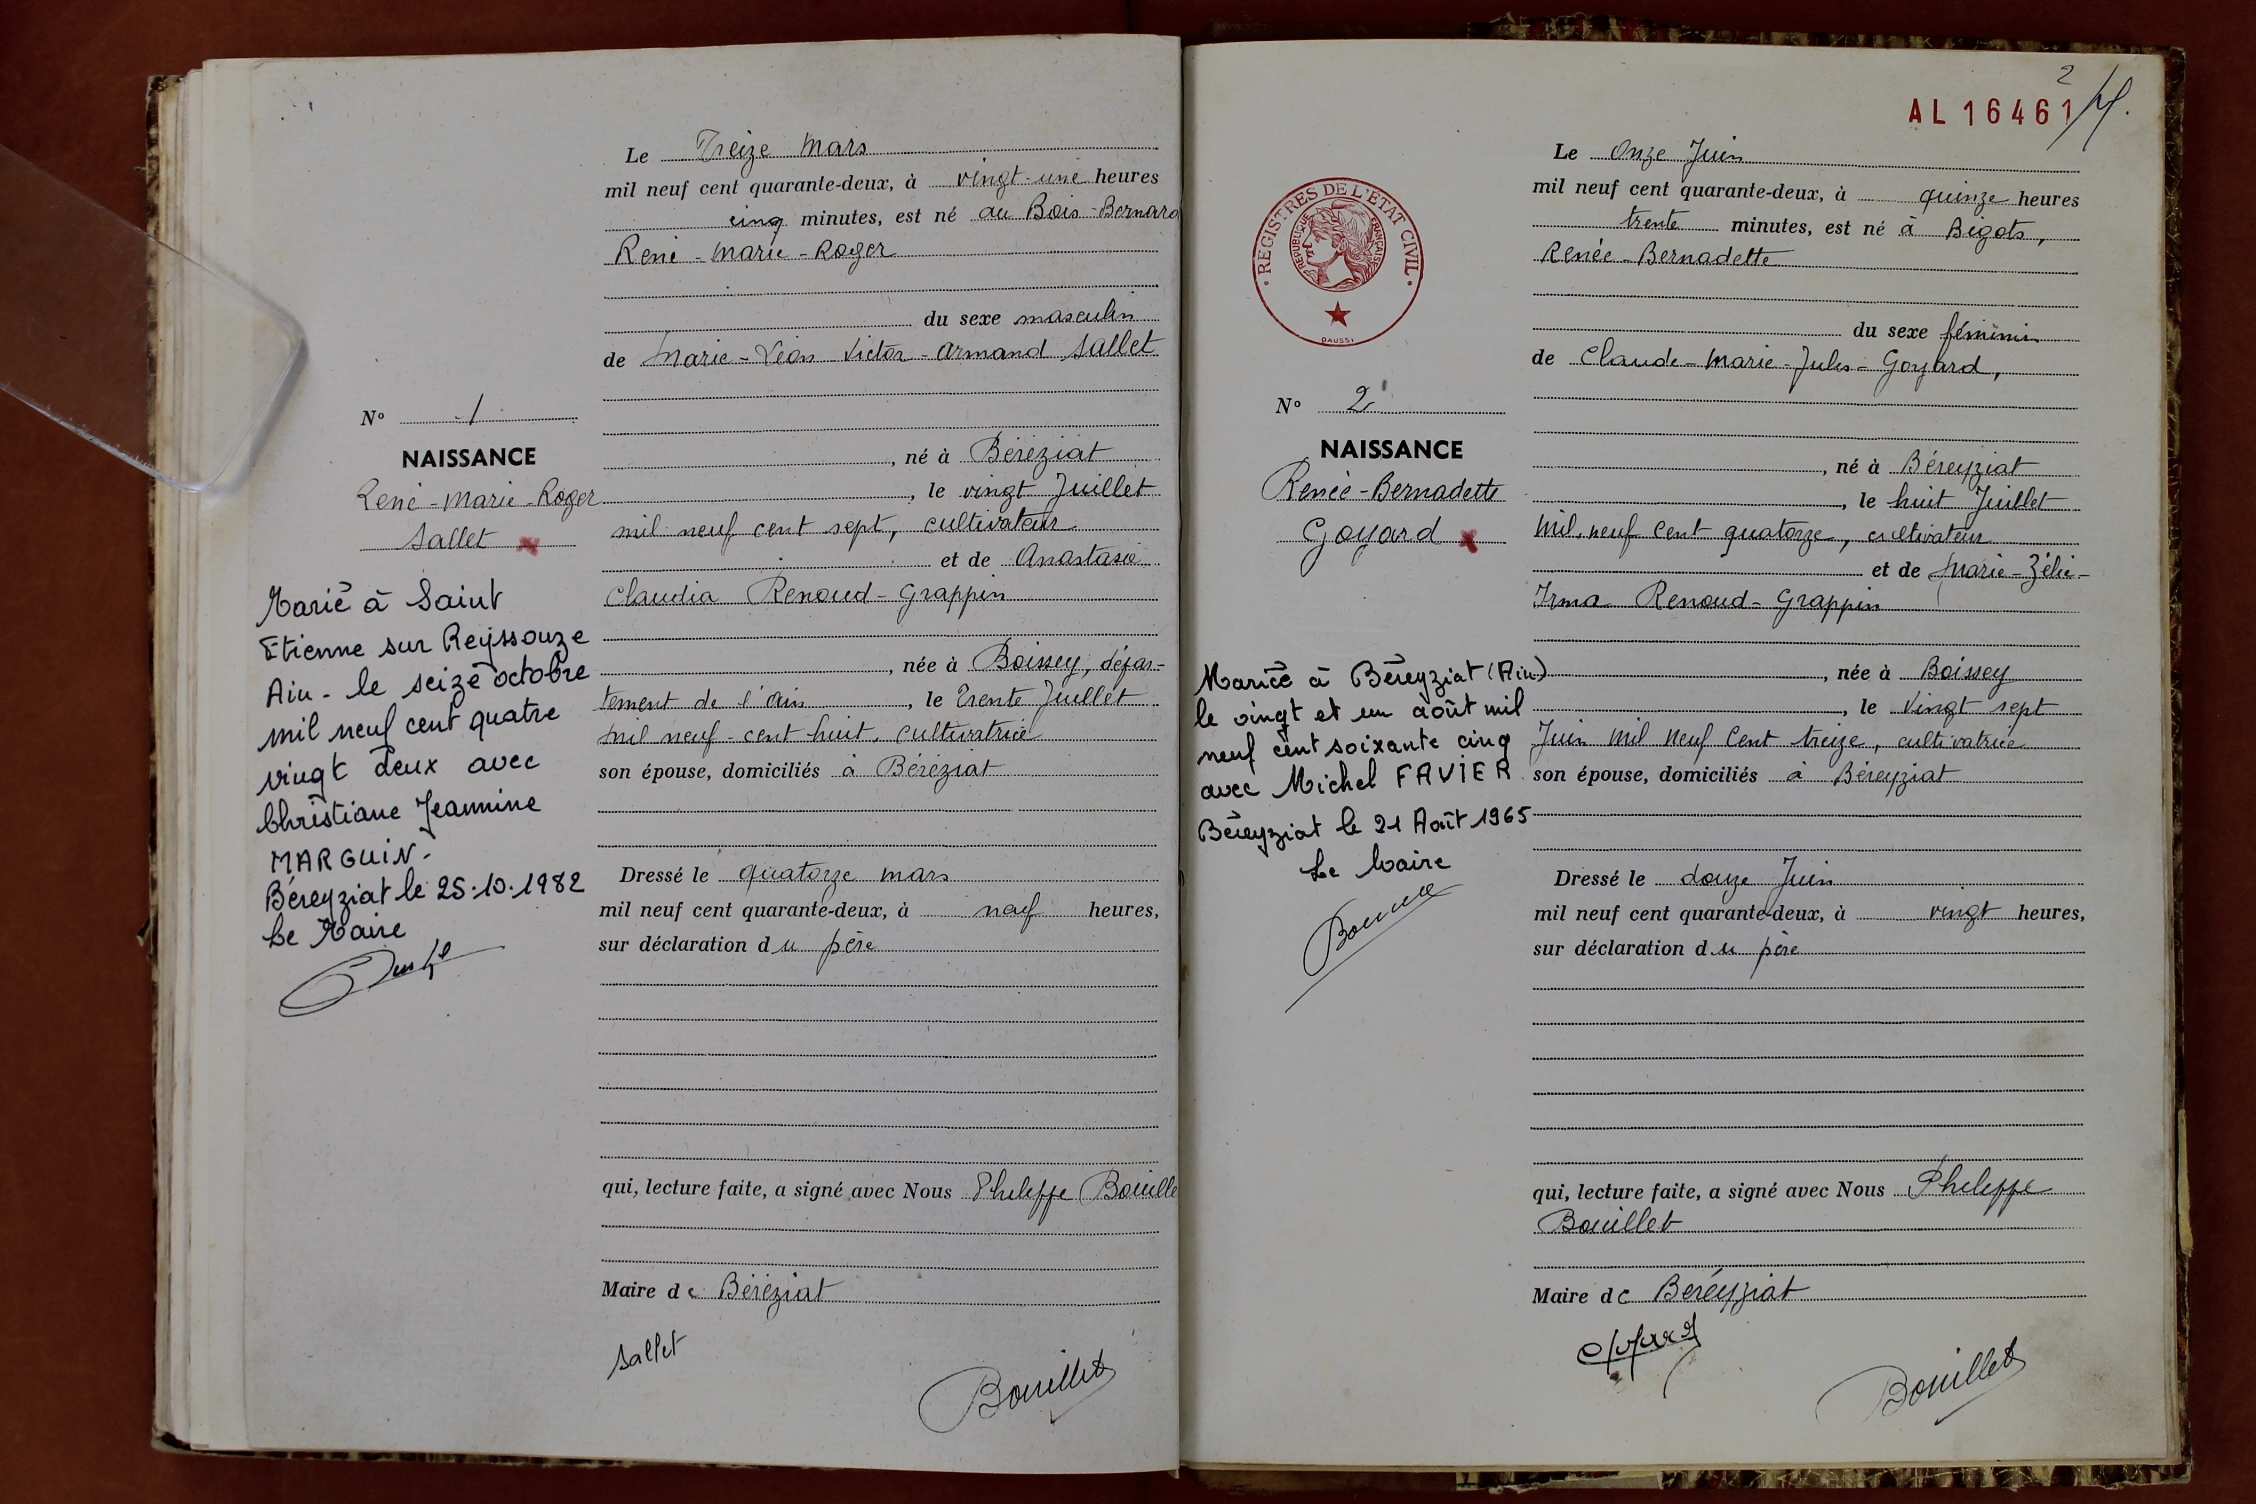 Le Treize Mars
mil neuf cent quarante-deux, à vingt-une heures
cinq minutes, est né au Bois-Bernard
René-Marie-Roger
du sexe masculin
de Marie-Léon-Victor-Armand Sallet
N° 1
NAISSANCE
René-Marie-Roger
Sallet
, né à Béréziat
, le vingt Juillet
mil neuf cent sept, cultivateur
et de Anastasie
Claudia Renoud-Grappin
, née à Boissey, dépar-
tement de l'Ain, le trente Juillet
mil neuf-cent huit, cultivatrice
son épouse, domiciliés à Béréziat
Marié à Saint
Etienne sur Reyssouze
Ain - le seize octobre
mil neuf cent quatre
vingt deux avec
Christiane Jeannine
MARGUIN.
Béreyziat le 25.10.1982
Le Maire
Dressé le quatorze mars
mil neuf cent quarante-deux, à neuf heures,
sur déclaration du père
qui, lecture faite, a signé avec Nous Pheleppe Bouille
Maire de Béréziat
Sallet
Bouillet
2
AL 16461
Le Onze Juin
mil neuf cent quarante-deux, à quinze heures
trente minutes, est né à Bigots,
Renée-Bernadette
du sexe féminin
de Claude-Marie-Jules-Goyard,
REGISTRES DE L'ETAT CIVIL
REPUBLIQUE FRANÇAISE
DAUSSI
N° 2
NAISSANCE
Renée-Bernadette
Goyard
, né à Béreyziat
, le huit Juillet
mil neuf cent quatorze, cultivateur
et de Marie-Zélie-
Irma Renoud-Grappin
, née à Boissey
, le Vingt sept
Juin mil neuf cent treize, cultivatrice
son épouse, domiciliés à Béreyziat
Mariée à Béreyziat (Ain)
le vingt et un août mil
neuf cent soixante cinq
avec Michel FAVIER
Béreyziat le 21 Août 1965
Le Maire
Dressé le douze Juin
mil neuf cent quarante-deux, à vingt heures,
sur déclaration du père
qui, lecture faite, a signé avec Nous Pheleppe
Bouillet
Maire de Beréyziat
Bouillet